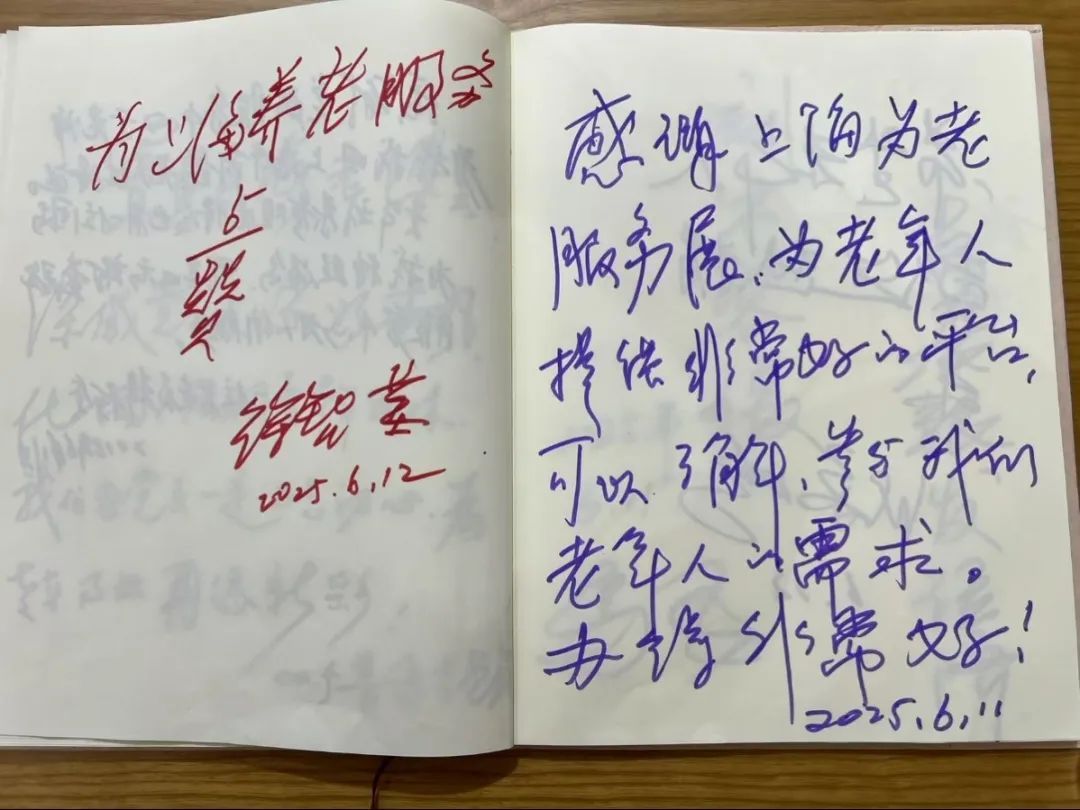 为上海养老服务
点赞
徐智
2025.6.12
感谢上海为老
服务展,为老年人
提供非常好的平台,
可以了解、参与我们
老年人的需求。
办得非常好!
2025.6.11